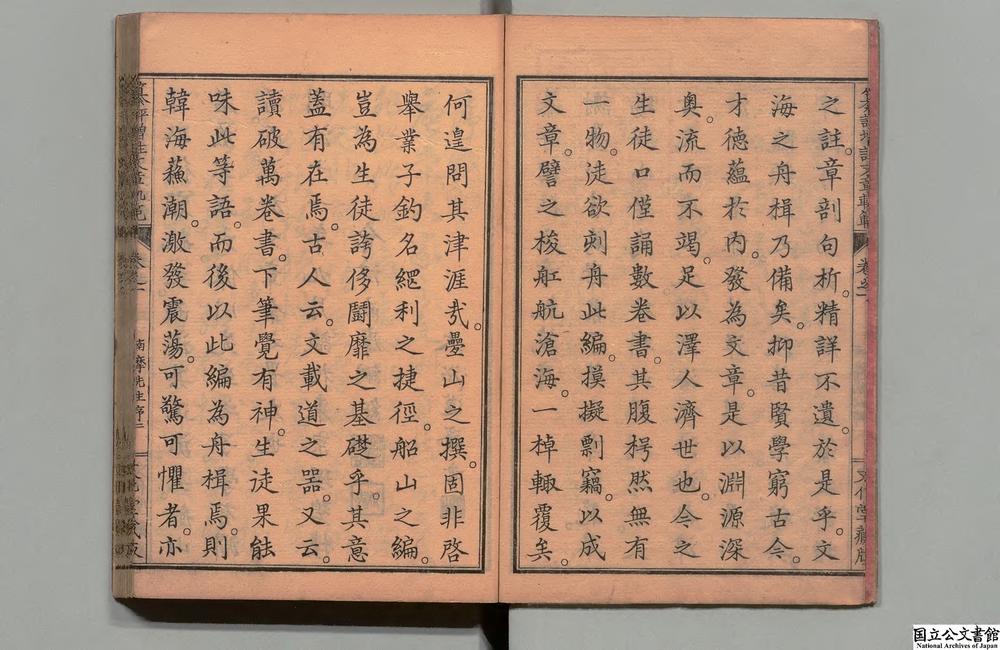 之註。章剖句析。精詳不遺。於是乎。文
海之舟楫乃備矣。抑昔賢學窮古今。
才德蘊於內。發為文章。是以淵源深
奧。流而不竭。足以澤人濟世也。今之
生徒口僅誦數卷書。其腹枵然無有
一物。徒欲刺舟此編。摸擬剽竊。以成
文章。譬之梭舡航滄海。一棹輙覆矣。
何遑問其津涯哉。疊山之撰。固非啓
舉業子釣名網利之捷徑。船山之編。
豈為生徒誇侈鬪靡之基礎乎。其意
蓋有在焉。古人云。文載道之器。又云。
讀破萬卷書。下筆覺有神。生徒果能
味此等語。而後以此編為舟楫焉。則
韓海蘓潮。激發震蕩。可驚可懼者。亦
卷之一
南摩先生序二
国立公文書館
National Archives of Japan